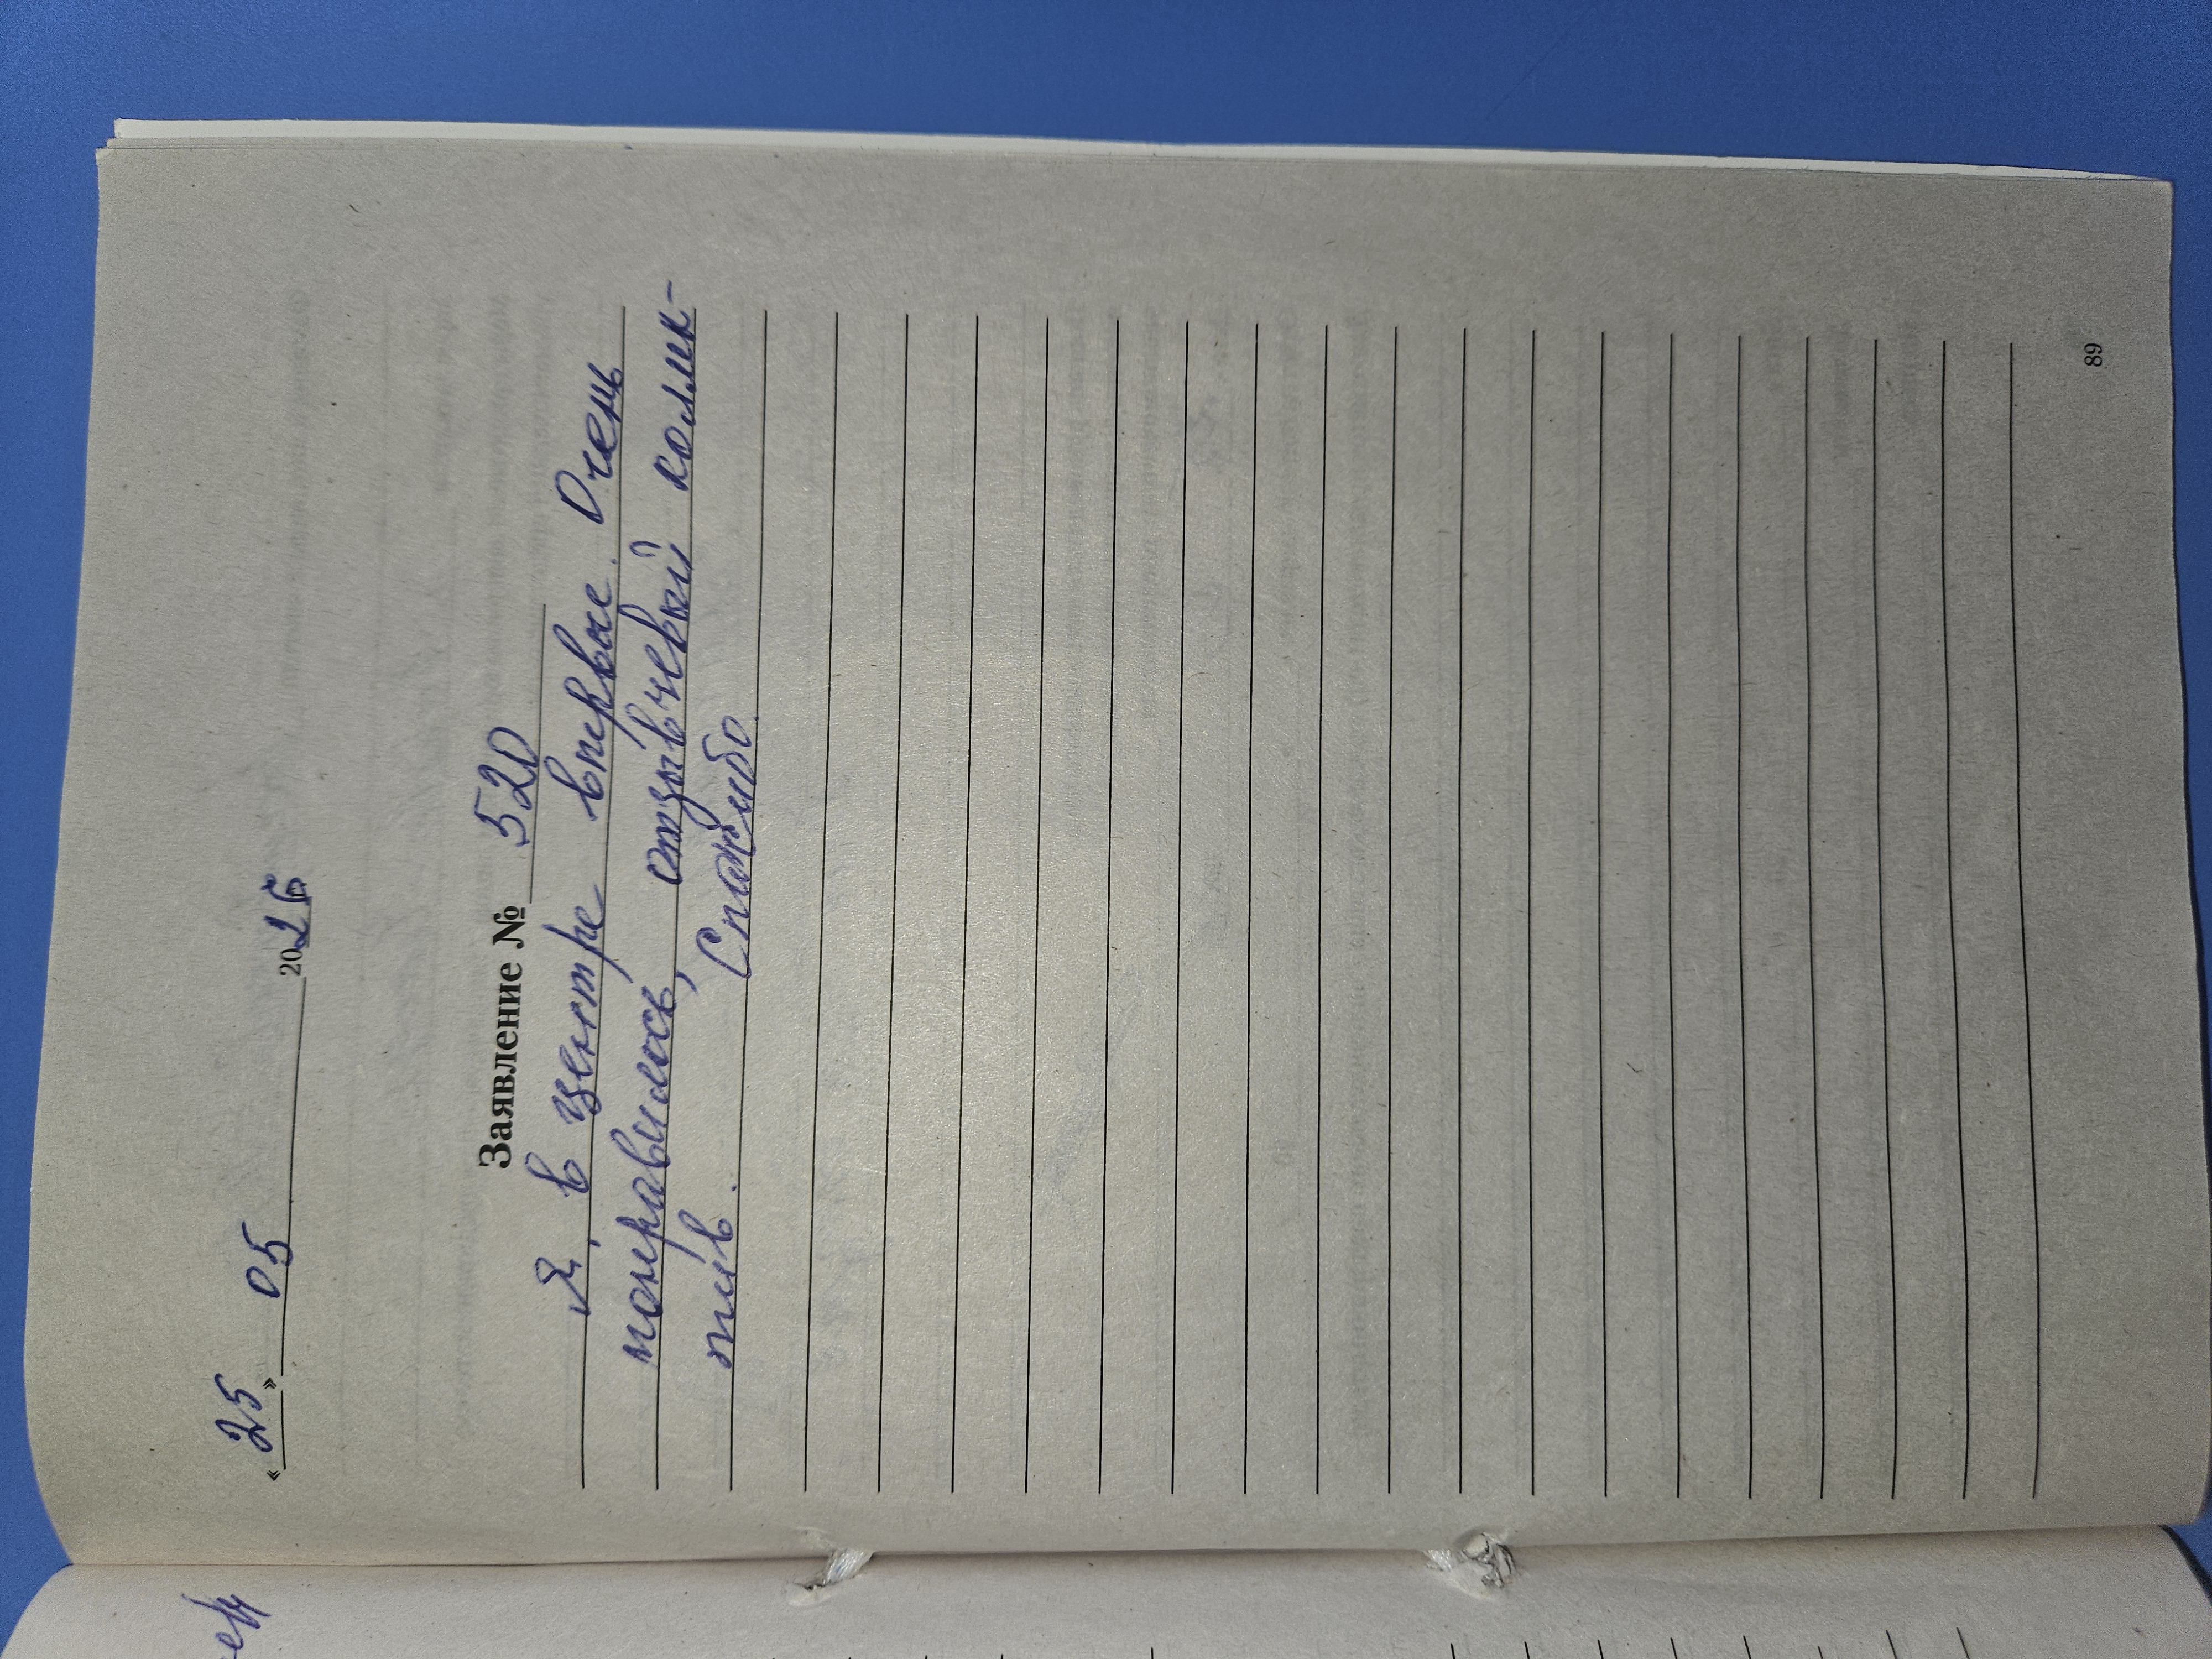 « 25 » 05 2025
Заявление № 520
Я, в центре впервые. Очень
понравилось, отзывчевый коллек-
тив. Спасибо.
89